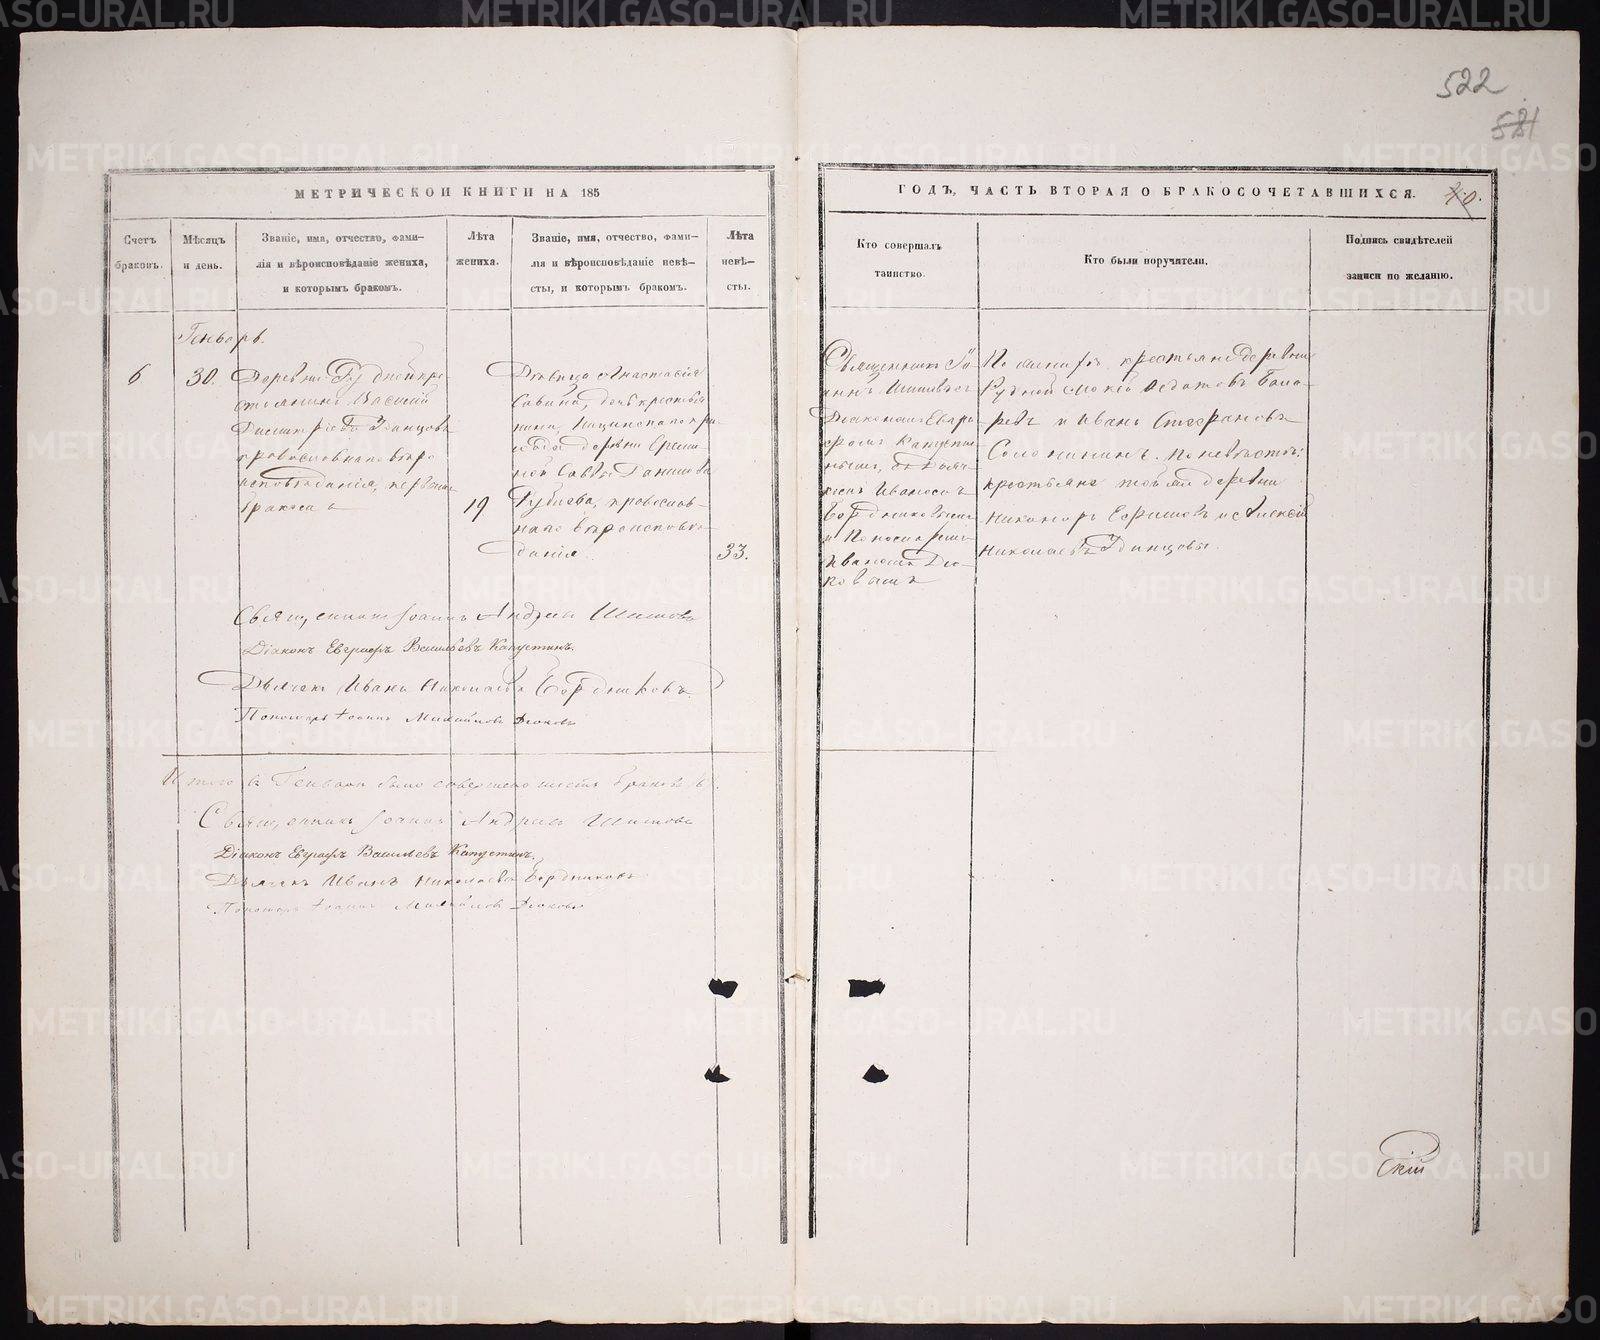 522
581
МЕТРИЧЕСКОИ КНИГИ НА 185
ГОДЪ, ЧАСТЬ ВТОРАЯ О БРАКОСОЧЕТАВШИХСЯ.
Счетъ
браковъ.
Мѣсяцъ
и день.
Званіе, имя, отчество, фами-
лія и вѣроисповѣданіе жениха,
и которымъ бракомъ.
Лѣта
жениха.
Званіе, имя, отчество, фами-
лія и вѣроисповѣданіе невѣ-
сты, и которымъ бракомъ.
Лѣта
невѣ-
сты.
Кто совершалъ
таинство.
Кто были поручители.
Подпись свидѣтелей
записи по желанію.
Генварь.
6
30.
Деревни Рудной кре
стьянинъ Василій
Димитріевъ Одинцовъ
православнаго вѣро
исповѣданія, первымъ
бракомъ
19
Дѣвица Анастасія
Савина, дочь крестья
нина,
деревни
ной Саввы Данилова
Кубаева, православ-
наго вѣроисповѣ-
данія.
33.
Священникъ Іо
аннъ Шишовъ съ
Діакономъ Евгра-
фомъ Капусти-
нымъ, Дьяч-
комъ Иваномъ
Бердниковымъ
и Пономаремъ
Иваномъ Дья-
ковымъ
По женихѣ: крестьяне деревни
Рудной Мокій Федотовъ
и Иванъ Стефановъ
Соломинынъ. По невѣстѣ:
крестьяне той же деревни
Никаноръ Ефимовъ и Алексѣй
Николаевъ Одинцовы.
Священникъ Іоаннъ Андреевъ Шишовъ
Діаконъ Евграфъ Васильевъ Капустинъ.
Дьячекъ Иванъ Николаевъ Бердниковъ.
Пономарь Іоаннъ Михайловъ Дьяковъ
Итого въ Генварѣ было совершено шесть браковъ 6.
Священникъ Іоаннъ Андреевъ Шишовъ
Діаконъ Евграфъ Васильевъ Капустинъ.
Дьячекъ Иванъ Николаевъ Бердниковъ
Пономарь Іоаннъ Михайловъ Дьяковъ
скій
METRIKI.GASO-URAL.RU